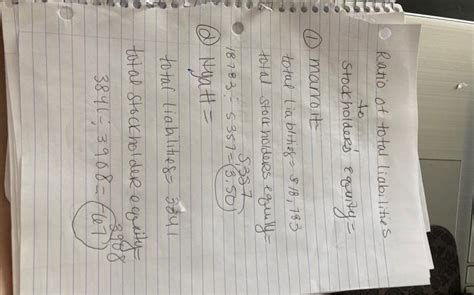 Ratio of total liabilities
to
Stockholders' equity =
①
total liabilities =
total stockholders equity =
5357
18783 ÷ 5357 = 3.50
② Hyatt =
total liabilities =
total stockholder equity =